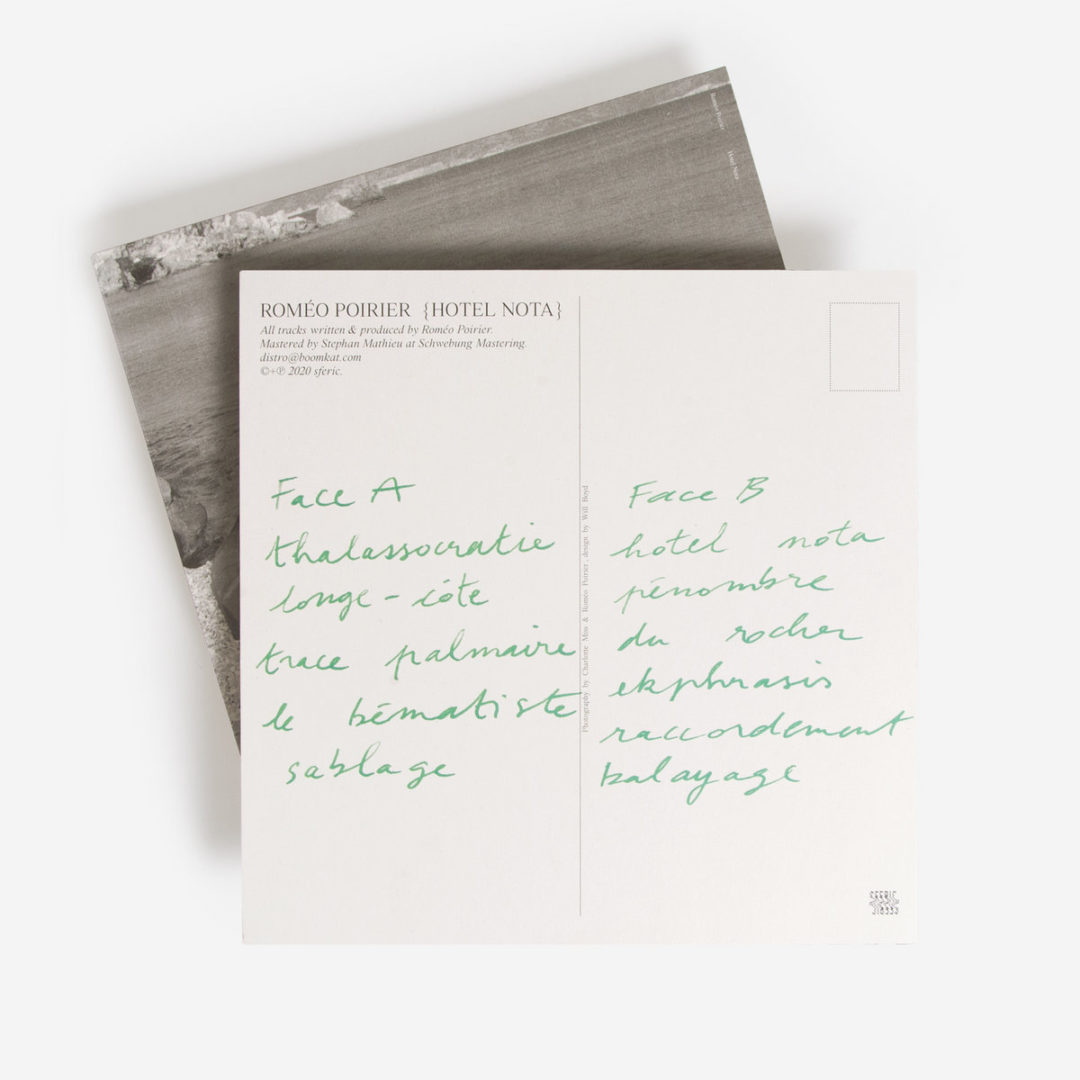 Roméo Poirier
Hotel Nota
ROMÉO POIRIER {HOTEL NOTA}
All tracks written & produced by Roméo Poirier.
Mastered by Stephan Mathieu at Schwebung Mastering.
distro@boomkat.com
©+℗ 2020 sferic.
Face A
thalassocratie
longe-côte
trace palmaire
le bématiste
sablage
Photography by Charlotte Mius & Roméo Poirier. design by Will Boyd
Face B
hotel nota
pénombre
du rocher
ekphrasis
raccordement
balayage
SFERIC